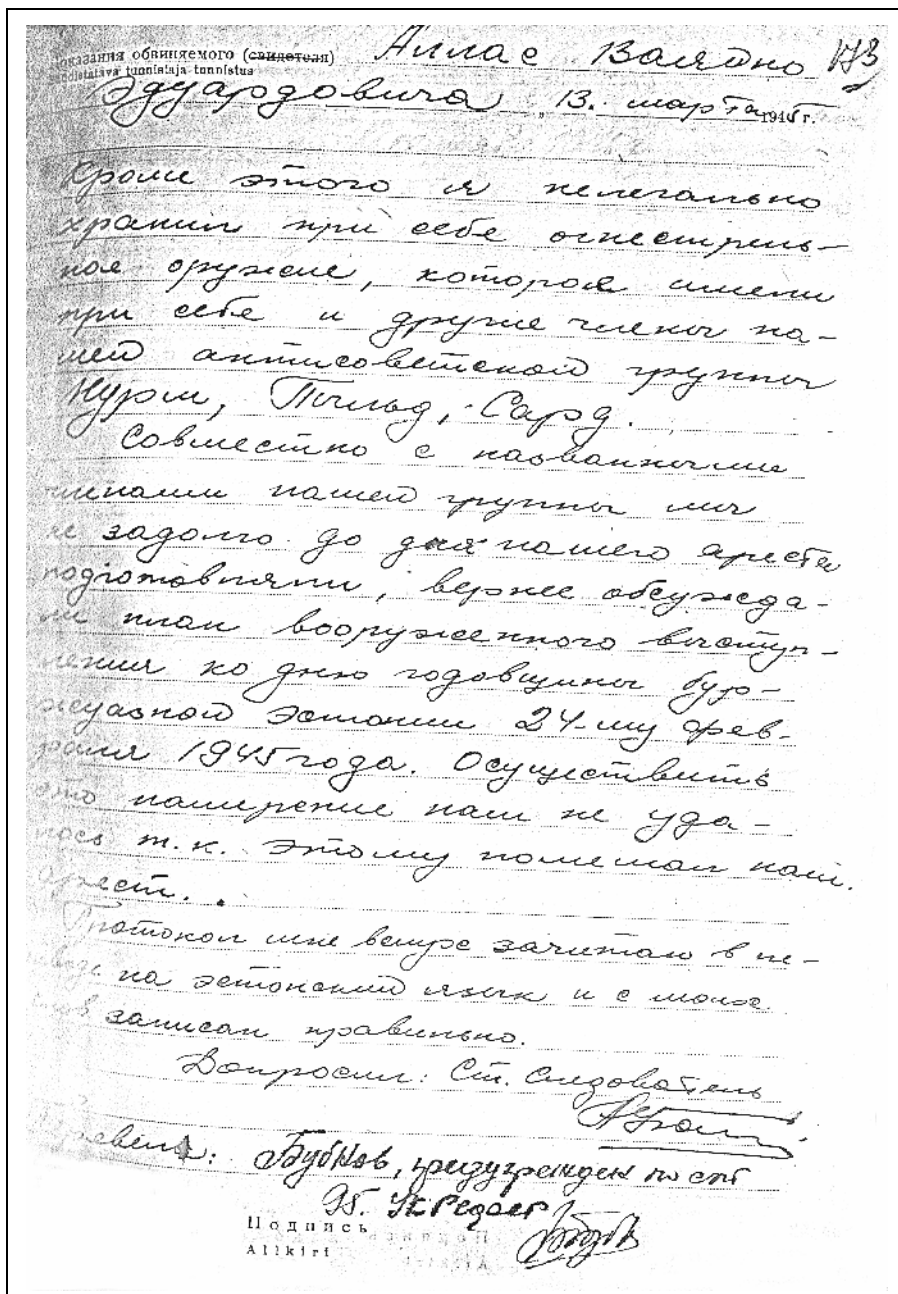 Показания обвиняемого (свидетеля) Аллас Валяйно 173
tunnistaja tunnistus
Эдуардовича „ 13. марта 1945 г.
Кроме этого я нелегально
хранил при себе огнестрель-
ное оружие, которое имели
при себе и другие члены на-
шей антисоветской группы
Нурм, Тыльд, Сард.
Совместно с названными
членами нашей группы мы
не задолго до дня нашего ареста
подготовляли, вернее обсужда-
ли план вооруженного выступ-
ления ко дню годовщины бур-
жуазной Эстонии 24-му фев-
раля 1945 года. Осуществить
это намерение нам не уда-
лось т.к. этому помешал наш.
арест.
Протокол мне вслух зачитан в пе-
реводе на эстонский язык и с моих
слов записан правильно.
Допросил: Ст. Следователь
Перевел: Бубнов, предупрежден по ст.
95. УК РСФСР
Подпись
Allkiri